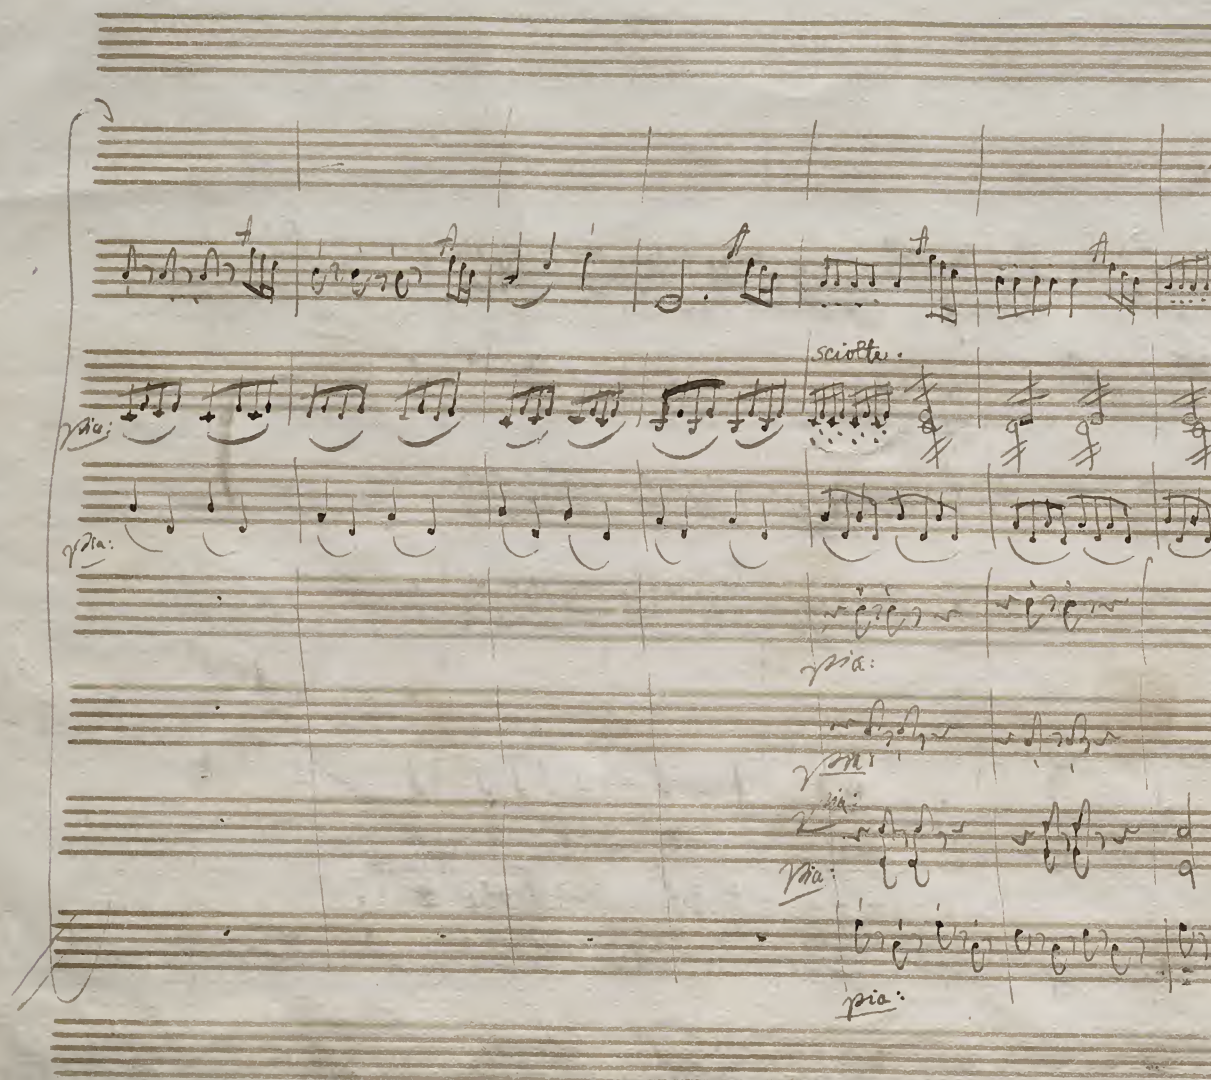 sciolte.
pia:
pia:
pia:
pia:
pia:
pia:
pia: